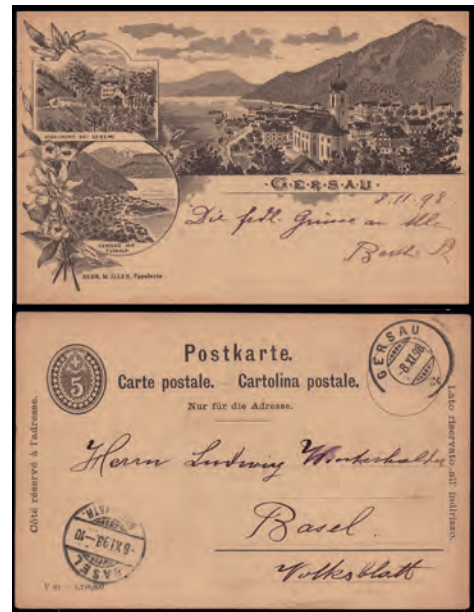 GERSAU
8.11.98
Die frdl. Grüsse an Alle
GERSAU MIT
GEBR. MÜLLER, Papeterie
Postkarte.
Carte postale. – Cartolina postale.
Nur für die Adresse.
5
GERSAU
-8.XI.98
Côté réservé à l'adresse.
Lato riservato all' indirizzo.
Herrn Ludwig Winterhalder
Basel.
Volksblatt
BASEL
-8.XI.98.-10